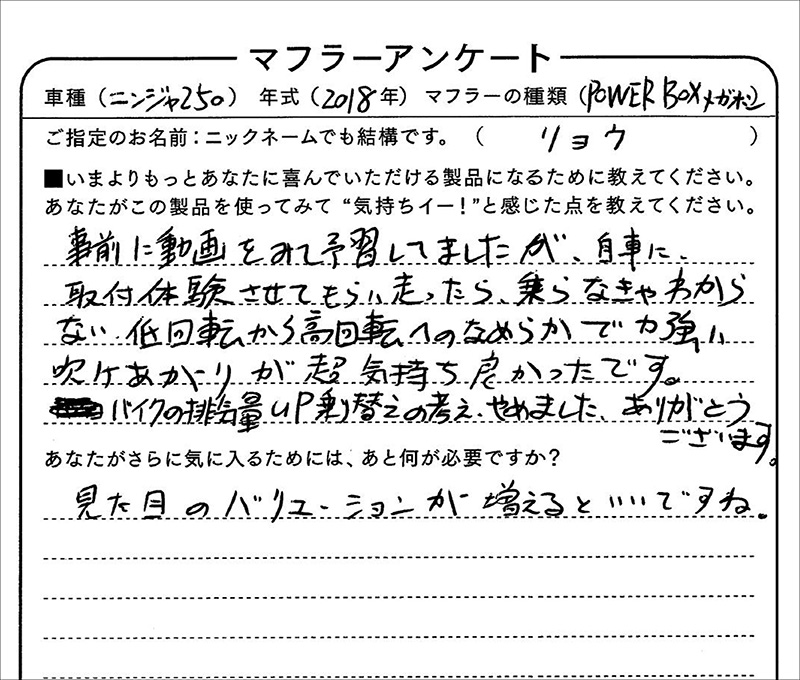 マフラーアンケート
車種（ニンジャ250） 年式（2018年） マフラーの種類（POWER BOXメガホン）
ご指定のお名前：ニックネームでも結構です。（ リョウ ）
■いまよりもっとあなたに喜んでいただける製品になるために教えてください。
あなたがこの製品を使ってみて “気持ちイー！”と感じた点を教えてください。
事前に動画をみて予習してましたが、自車に、
取付体験させてもらい走ったら、乗らなきゃわから
ない 低回転から高回転へのなめらかで力強い
吹ケあがりが超気持ち良かったです。
バイクの排気量UP乗り替えの考え、やめました、ありがとう
ございます。
あなたがさらに気に入るためには、あと何が必要ですか？
見た目のバリエーションが増えるといいですね。